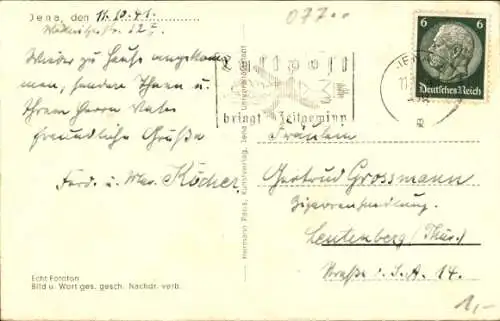 Jena, den 11.10.41.
077..
Wieder zu Hause angekom
men, senden Ihnen u.
Ihrem Herrn Vater
freundliche Grüße
Ferd. u. Köcher.
Luftpost
bringt Zeitgewinn
6 6
Deutsches Reich
JENA
Fräulein
Gertrud Grossmann
Zigarrenhandlung.
Leutenberg/Thür.
Straße d. S.A. 14.
Echt Foroton
Bild u. Wort ges. gesch. Nachdr. verb.
Hermann Paris, Kunstverlag, Jena
1,-